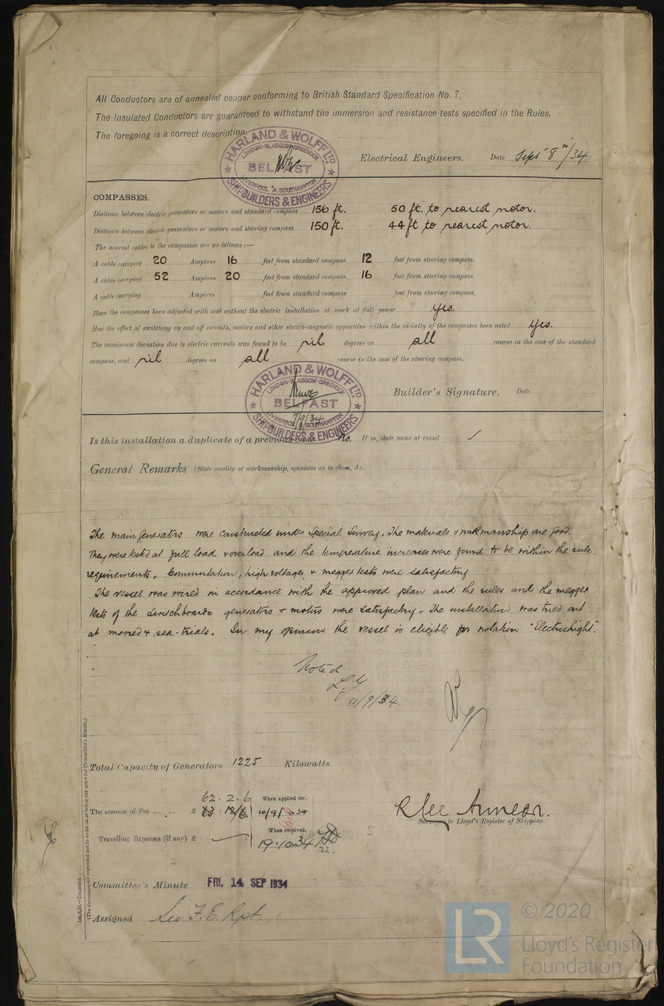 All Conductors are of annealed copper conforming to British Standard Specification No. 7.
The Insulated Conductors are guaranteed to withstand the immersion and resistance tests specified in the Rules.
The foregoing is a correct description.
HARLAND & WOLFF LTD
LONDON-GLASGOW-GREENOCK
BELFAST
LIVERPOOL & SOUTHAMPTON
SHIPBUILDERS & ENGINEERS
Electrical Engineers. Date Sept 8th/34.
COMPASSES.
Distance between electric generators or motors and standard compass 156 ft. 50 ft. to nearest motor.
Distance between electric generators or motors and steering compass 150 ft. 44 ft to nearest motor.
The nearest cables to the compasses are as follows:—
A cable carrying 20 Amperes 16 feet from standard compass 12 feet from steering compass.
A cable carrying 52 Amperes 20 feet from standard compass 16 feet from steering compass.
A cable carrying Amperes feet from standard compass feet from steering compass.
Have the compasses been adjusted with and without the electric installation at work at full power Yes.
Has the effect of switching on and off circuits, motors and other electro-magnetic apparatus within the vicinity of the compasses been noted Yes.
The maximum deviation due to electric currents was found to be nil degrees on all course in the case of the standard
compass, and nil degrees on all course in the case of the steering compass.
HARLAND & WOLFF LTD
LONDON-GLASGOW-GREENOCK
BELFAST
7/9/34
LIVERPOOL & SOUTHAMPTON
SHIPBUILDERS & ENGINEERS
Builder's Signature. Date
Is this installation a duplicate of a previous No. If so, state name of vessel ✓
General Remarks (State quality of workmanship, opinions as to class, &c. )
The main generators were constructed under Special Survey. The materials & workmanship are good.
They were tested at full load & overload and the temperature increases were found to be within the rule
requirements. Commutation, high voltage, & megger tests were satisfactory
The vessel was wired in accordance with the approved plan and the rules and the megger
tests of the switchboards generators & motors were satisfactory. The installation was tried out
at moored & sea-trials. In my opinion the vessel is eligible for notation "Electric light".
Noted
10/9/34.
Total Capacity of Generators 1225 Kilowatts.
62 . 2 . 6
The amount of Fee ... ... £ 63 : 13/6 When applied for, 10/9/1934
Travelling Expenses (if any) £ When received, 19.10.34
22.
Surveyor to Lloyd's Register of Shipping.
Committee's Minute FRI. 14 SEP 1934
Assigned See F.E. Rpt.
LR
© 2020
Lloyd's Register
Foundation